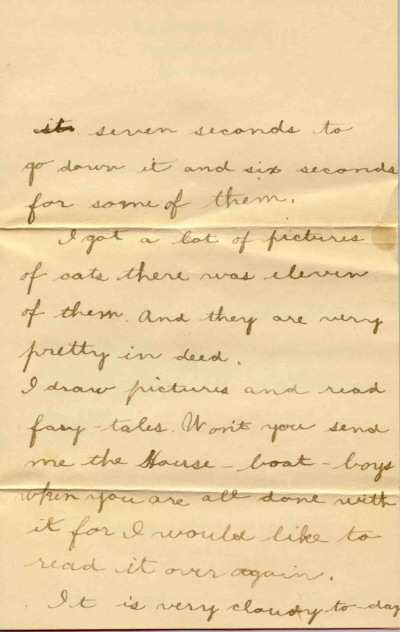 it seven seconds to
go down it and six seconds
for some of them.
I got a lot of pictures
of cats there was eleven
of them. And they are very
pretty in deed.
I draw pictures and read
fary-tales. Wont you send
me the House-boat-boys
when you are all done with
it for I would like to
read it over again.
It is very cloudy to-day